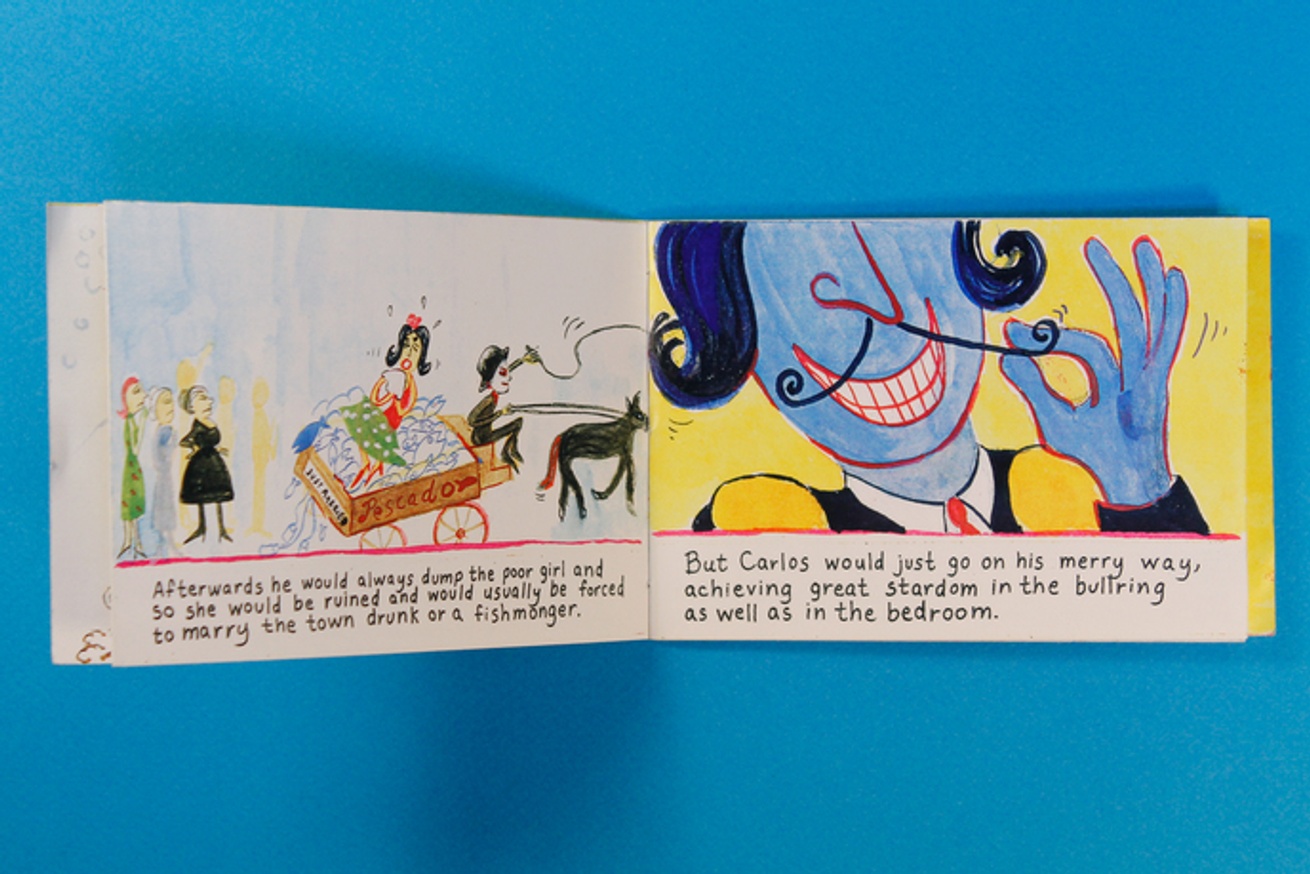 JUST MARRIED
Pescador
Afterwards he would always dump the poor girl and
so she would be ruined and would usually be forced
to marry the town drunk or a fishmonger.
But Carlos would just go on his merry way,
achieving great stardom in the bullring
as well as in the bedroom.